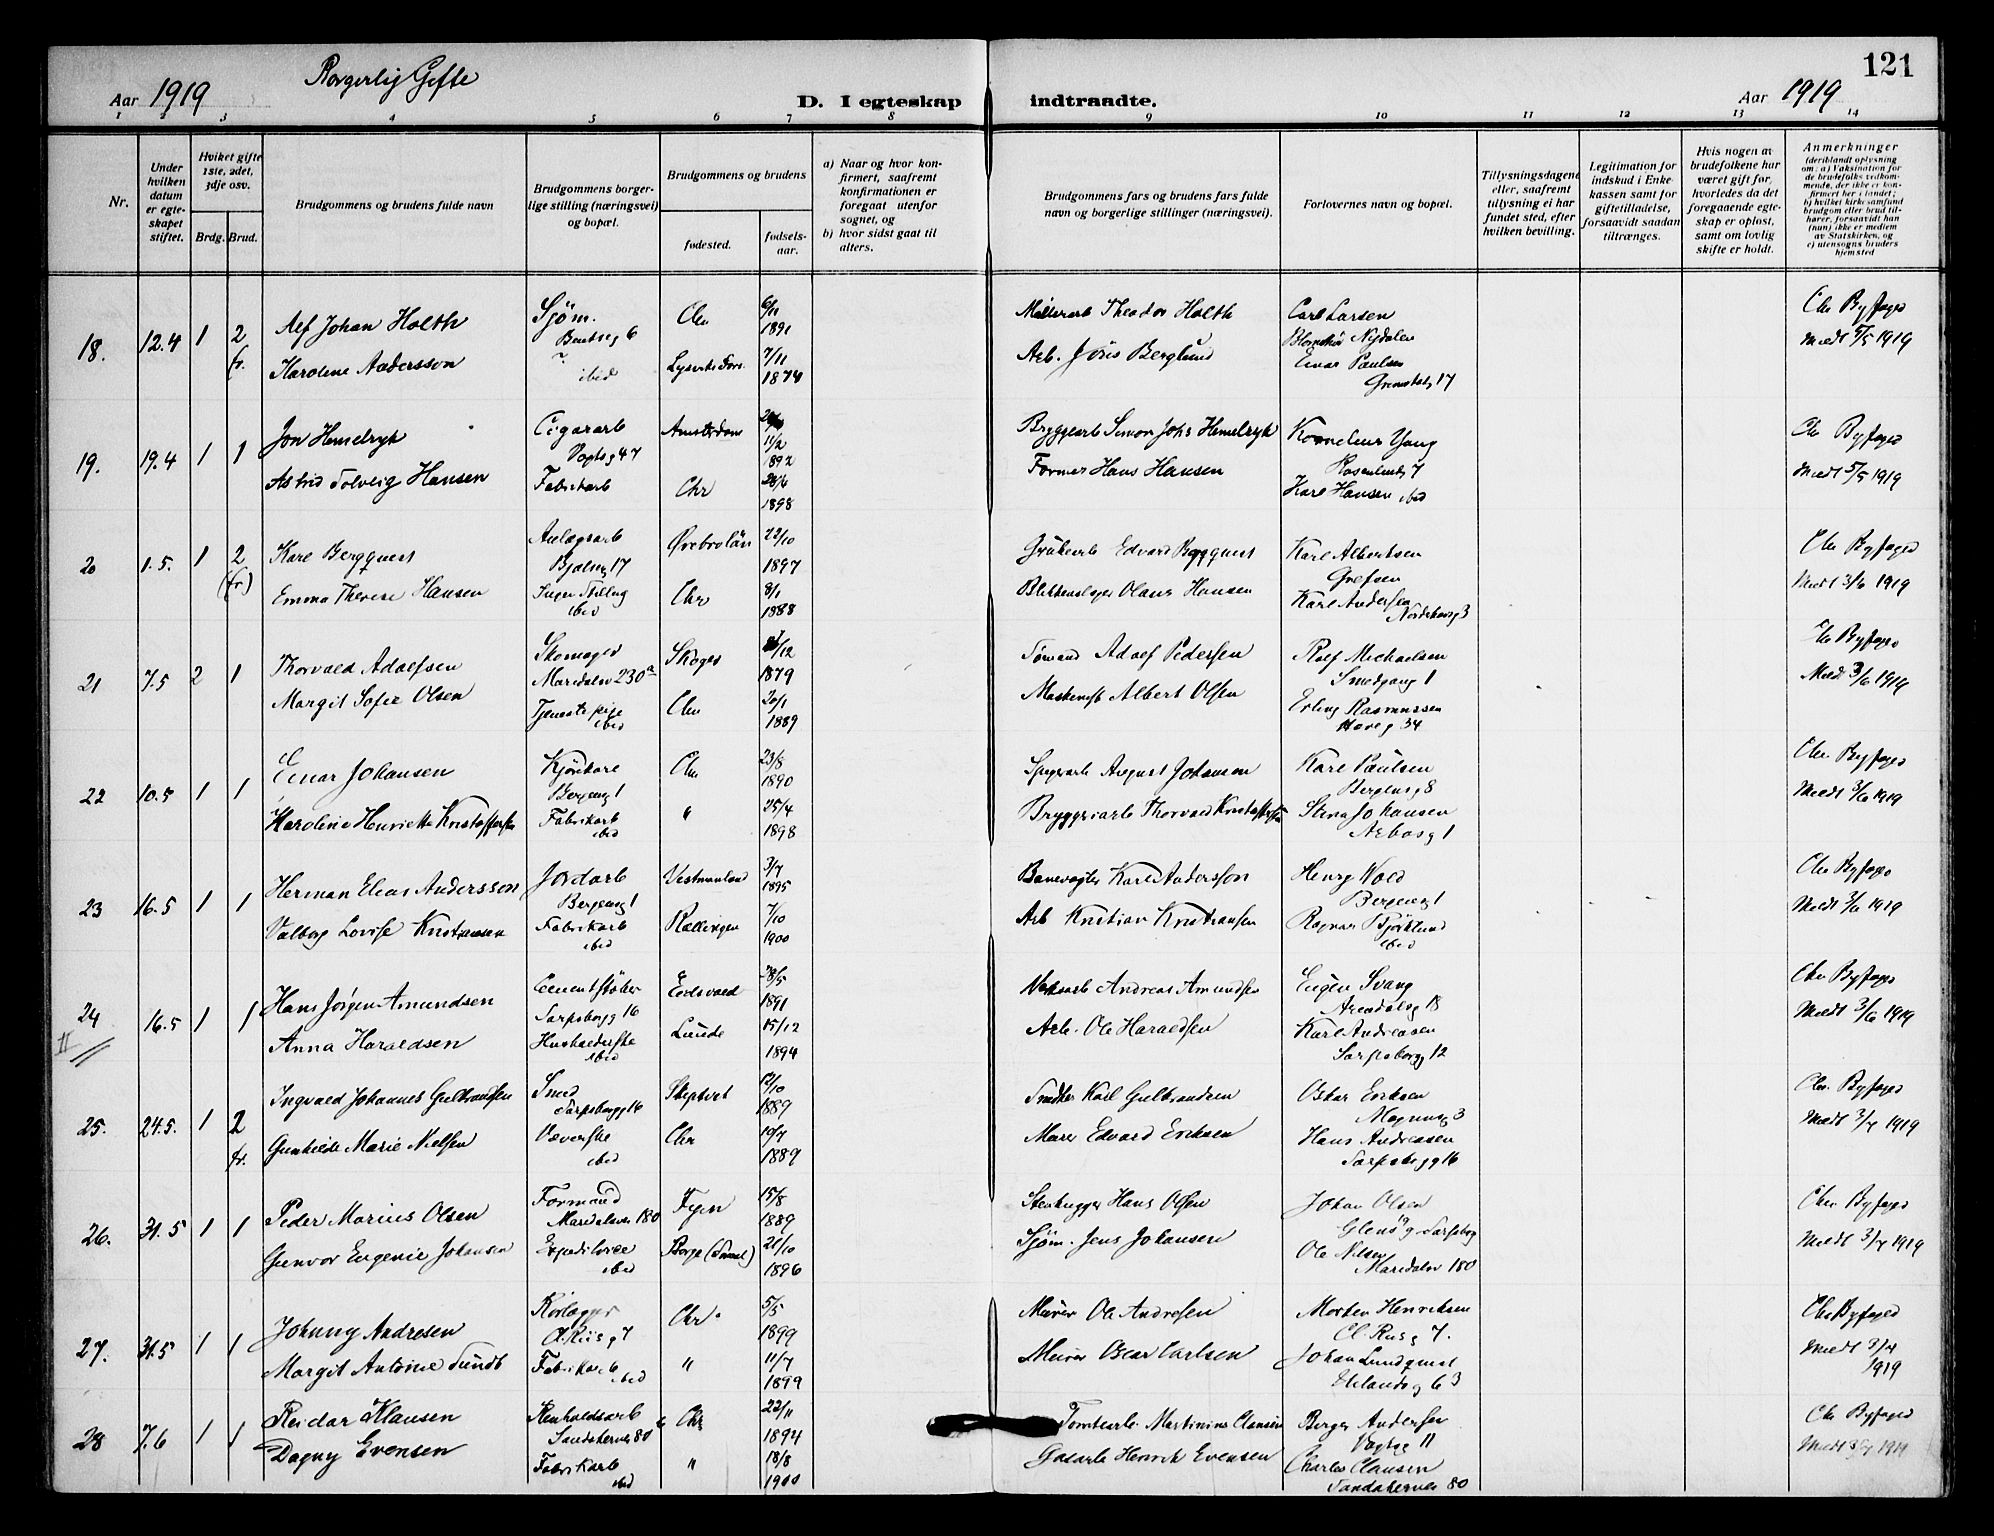 121
Aar 1919 Borgerlig Gifte
D. I egteskap indtraadte.
Aar 1919
1 2 3 4 5 6 7 8 9 10 11 12 13 14
Nr.
Under hvilken datum er egteskapet stiftet.
Hvilket gifte 1ste, 2det, 3dje osv.
Brdg. Brud.
Brudgommens og brudens fulde navn
Brudgommens borgerlige stilling (næringsvei) og bopæl.
Brudgommens og brudens
fødested.
fødselsaar.
a) Naar og hvor konfirmert, saafremt konfirmationen er foregaat utenfor sognet, og
b) hvor sidst gaat til alters.
Brudgommens fars og brudens fars fulde navn og borgerlige stillinger (næringsvei).
Forlovernes navn og bopæl.
Tillysningsdagene eller, saafremt tillysning ei har fundet sted, efter hvilken bevilling.
Legitimation for indskud i Enkekassen samt for giftetilladelse, forsaavidt saadan tiltrænges.
Hvis nogen av brudefolkene har været gift før, hvorledes da det foregaaende egteskap er opløst, samt om lovlig skifte er holdt.
Anmerkninger (deriblandt oplysning om: a) Vaksination for de brudefolks vedkommende, der ikke er konfirmert her i landet; b) hvilket kirkesamfund brudgom eller brud tilhører, forsaavidt han (hun) ikke er medlem av Statskirken, og c) utensogns bruders hjemsted
18. 12.4 1 2 fr.
Alf Johan Holth Sjøm. Chr 6/11 1891 Theodor Holth Carl Larsen Chr Byfoged
Karoline Andersson ibid 7/11 1874 Arb. Berglund Einar Paulsen Meldt 5/5 1919
Grimstadg 17
19. 19.4 1 1
Jon Hemelryk Cigararb Vogtsg 47 Amsterdam 11/2 1892 Bryggearb Simon Johs Hemelryk Kornelius Yang Chr Byfoged
Astrid Solveig Hansen Fabrikarb Chr 28/6 1898 Former Hans Hansen Karl Hansen ibid Meldt 5/5 1919
20 1.5. 1 2 (fr.)
Karl Bergquist Anlægsarb Ørebrolän 22/10 1897 Edvard Bergquist Karl Albertsen Grefsen Chr Byfoged
Emma Therese Hansen ibid Chr 8/1 1888 Blikkenslager Olaus Hansen Karl Andersen Meldt 3/6 1919
21 7.5 2 1
Thorvald Adolfsen Skomager Maridalsv 230a Skoger /12 1879 Adolf Pedersen Rolf Michaelsen Smedgang 1 Chr Byfoged
Margit Sofie Olsen Tjenestepige ibid Chr 20/1 1889 Maskinist Albert Olsen Erling Rasmussen 34 Meldt 3/6 1919
22 10.5 1 1
Einar Johansen Kjørekarl Bergensg 1 Chr 23/8 1890 August Johansen Karl Paulsen Bergensg 8 Chr Byfoged
Karoline Henriette Kristoffersen Fabrikarb ibid " 25/4 1898 Bryggeriarb Thorvald Kristoffersen Johansen 1 Meldt 3/6 1919
23 16.5 1 1
Herman Elias Andersson Jordarb Bergensg 1 Vestmanland 3/7 1895 Banevogter Karl Andersson Henry Wold Bergensg 1 Chr Byfoged
Valborg Lovise Kristiansen Fabrikarb ibid Rællingen 7/10 1900 Arb Kristian Kristiansen Ragnar Bjørklund ibid Meldt 3/6 1919
24 16.5 1 1
Hans Jørgen Amundsen Cementstøber Sarpsborgg 16 Eidsvold 1891 Andreas Amundsen Eugen Svang Arendalsg 18 Chr Byfoged
Anna Haraldsen Husholderske ibid Lunde 15/12 1894 Arb. Ole Haraldsen Karl Andreassen Sarpsborgg 12 Meldt 3/6 1919
25. 24.5. 1 2 fr.
Ingvald Johannes Gulbrandsen Smed Sarpsborgg 16 Skiptvet 12/10 1889 Karl Gulbrandsen Oskar Eriksen Magnusg 3 Chr Byfoged
Gunhilda Marie Nielsen Væverske ibid Chr 10/7 1889 Edvard Eriksen Hans Andreassen Sarpsborgg 16 Meldt 3/7 1919
26. 31.5 1 1
Peder Marius Olsen Formand Maridalsvei 180 Fyen 15/8 1889 Stenhugger Hans Olsen Johan Olsen Chr Byfoged
Gunvor Eugenie Johansen Expeditrice ibid Borge (Smaal) 21/10 1896 Sjøm. Jens Johansen Ole Nilsen Maridalsv 180 Meldt 3/7 1919
27. 31.5 1 1
Johnny Andresen Rørlægger Cl. Riisg 7 Chr. 5/5 1899 Murer Ole Andresen Morten Henriksen Cl. Rusg 7. Chr Byfoged
Margit Antoine Sundt Fabrikarb ibid " 11/7 1899 Murer Oscar Carlsen Johan Lundquist 63 Meldt 3/7 1919
28 7.6 1 1
Reidar Klausen Renholdsarb Sandakerves 80 Chr 22/11 1894 Tomtearb. Martinius Clausen Birger Andersen Vogtsg 11 Chr Byfoged
Dagny Evensen Fabrikarb ibid " 18/8 1900 Gasarb Henrik Evensen Charles Clausen Sandakerves 80 Meldt 3/7 1919